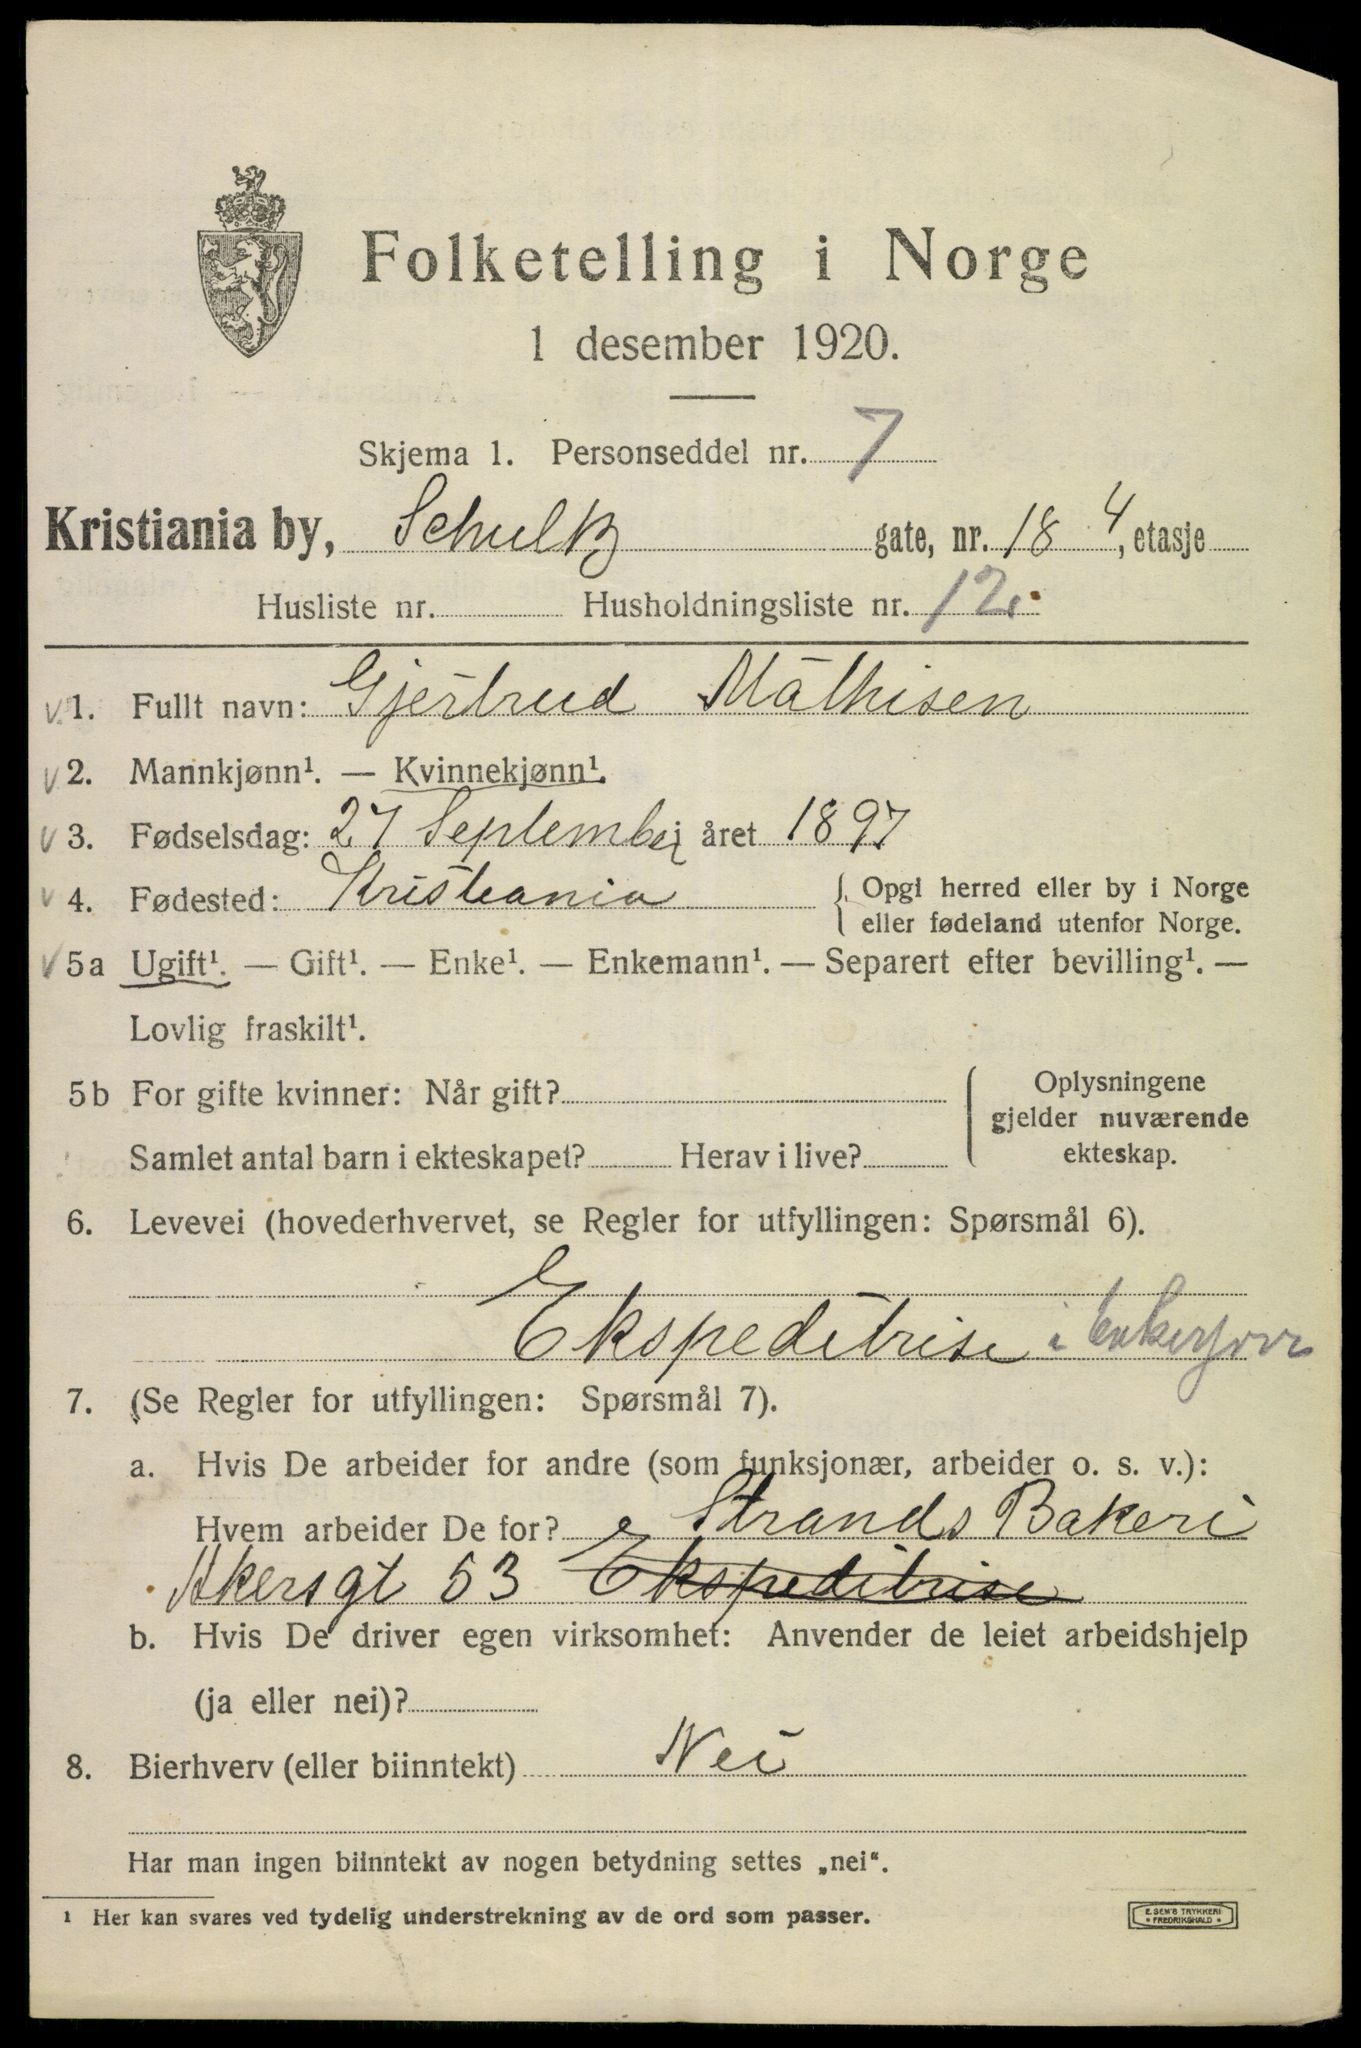 Folketelling i Norge
1 desember 1920.
Skjema 1. Personseddel nr. 7
Kristiania by, Schultz gate, nr. 18 4, etasje
Husliste nr. Husholdningsliste nr. 12.
v 1. Fullt navn: Gjertrud Mathisen
v 2. Mannkjønn¹. — Kvinnekjønn¹.
v 3. Fødselsdag: 27 September året 1897
v 4. Fødested: Kristiania { Opgi herred eller by i Norge
eller fødeland utenfor Norge.
v 5a Ugift¹. — Gift¹. — Enke¹. — Enkemann¹. — Separert efter bevilling¹. —
Lovlig fraskilt¹.
5b For gifte kvinner: Når gift? { Oplysningene
gjelder nuværende
Samlet antal barn i ekteskapet? Herav i live? ekteskap.
6. Levevei (hovederhvervet, se Regler for utfyllingen: Spørsmål 6).
Ekspeditrise i
7. (Se Regler for utfyllingen: Spørsmål 7).
a. Hvis De arbeider for andre (som funksjonær, arbeider o. s. v.):
Hvem arbeider De for? Strands Bakeri
Akersgt 53 Ekspeditrise
b. Hvis De driver egen virksomhet: Anvender de leiet arbeidshjelp
(ja eller nei)?
8. Bierhverv (eller biinntekt) Nei
Har man ingen biinntekt av nogen betydning settes „nei".
¹ Her kan svares ved tydelig understrekning av de ord som passer.
E. SEM'S TRYKKERI
* FREDRIKSHALD *